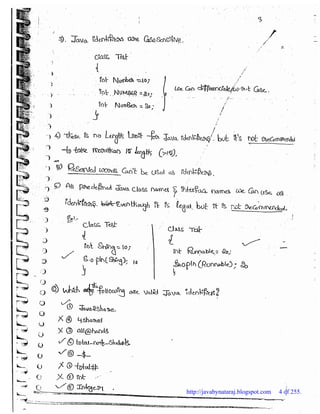 3). Java identifiers are CaseSensitive.
class Test
{
int Number=10;
int NUMBER=20;
int NumBer=30;
}
we can differentiate w.r.t Case.
4) There is no Length Limit for Java identifiers, but it's not recommended
to take more than 15 length (>15).
5) Reserved words Can't be used as identifiers.
All predefined Java class names & Interface names we can use as
identifiers. Eventhough it is legal, but it is not recommended.
Ex:-
class Test
{
int String=10;
S.o.pln(String); 10
}
class Test
{
int Runnable= 20;
S.o.pln(Runnable); 20
}
Q) which of the following are valid Java identifiers?
✓① Java2Share.
X② 4shared
X③ all@hands
✓④ total-no-of-students
✓⑤ _$_
X⑥ total#
X⑦ int
✓⑧ Integer
http://javabynataraj.blogspot.com 4 of 255.